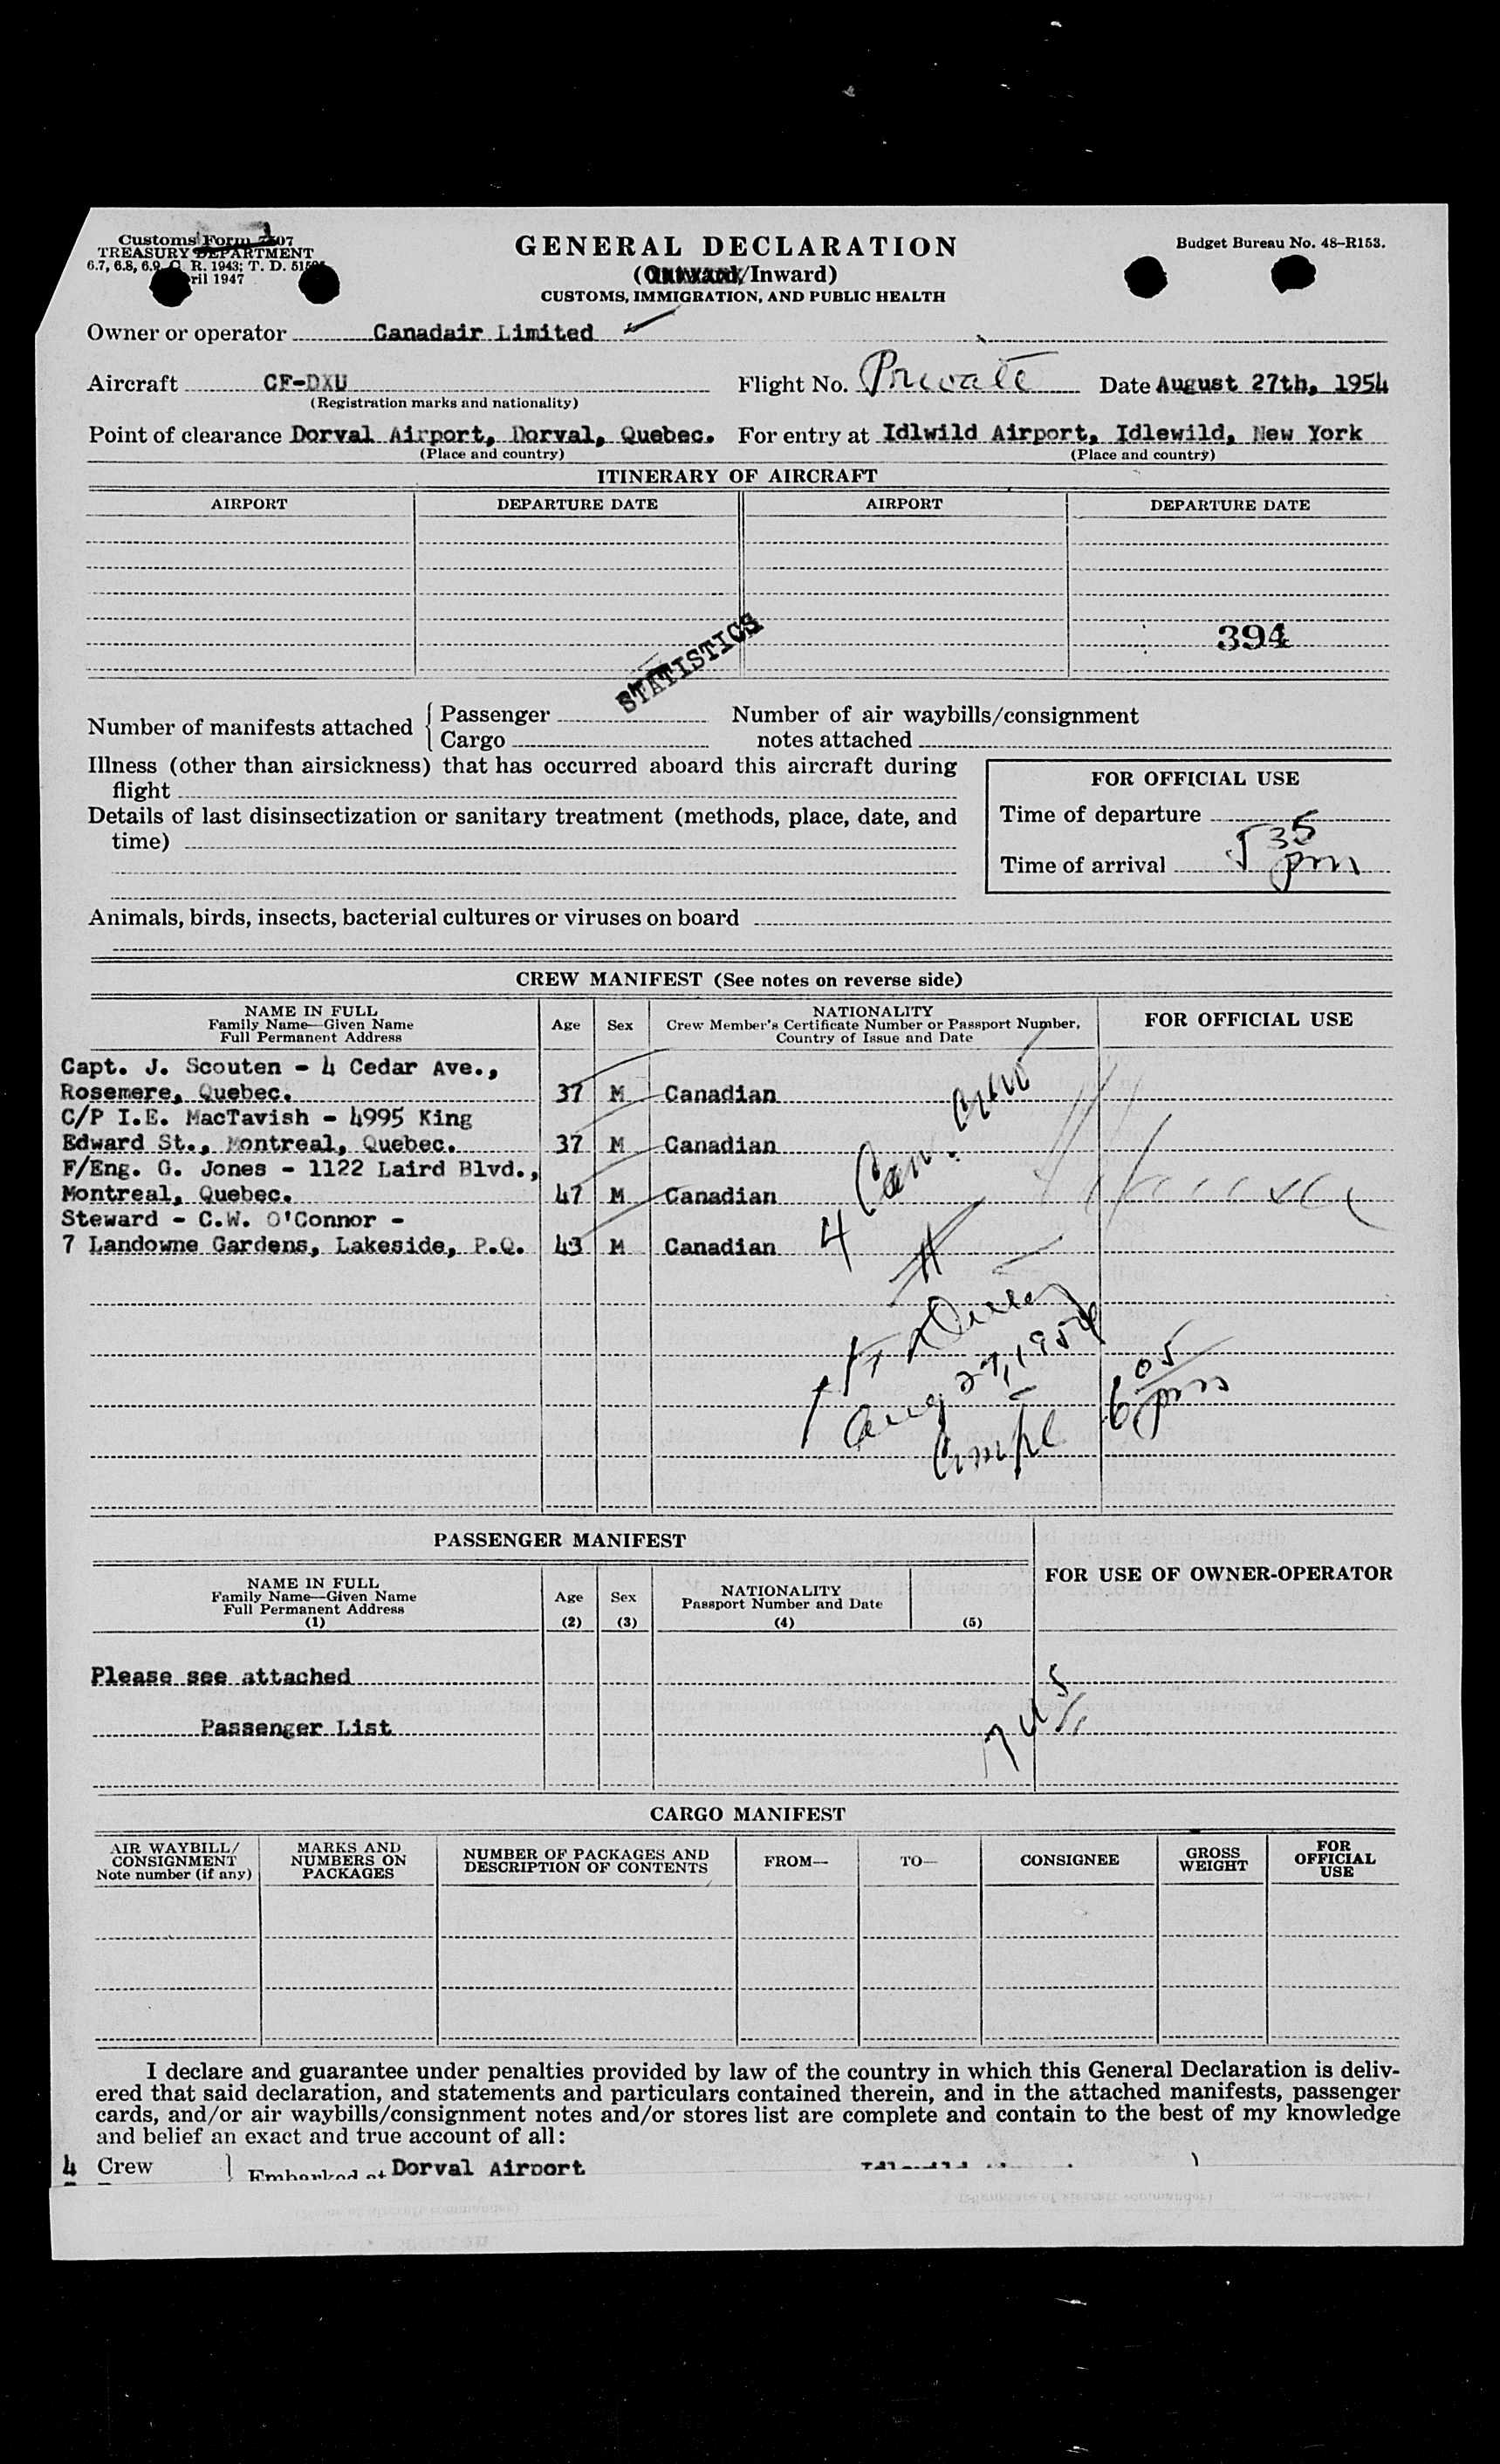 Customs Form 7507
GENERAL DECLARATION
Budget Bureau No. 48-R153.
TREASURY DEPARTMENT
6.7, 6.8, 6.9, C. R. 1943; T. D.
(Outward/Inward)
1947
CUSTOMS, IMMIGRATION, AND PUBLIC HEALTH
Owner or operator Canadair Limited
Aircraft CF-DXU Flight No. Private Date August 27th, 1954
(Registration marks and nationality)
Point of clearance Dorval Airport, Dorval, Quebec. For entry at Idlwild Airport, Idlewild, New York
(Place and country) (Place and country)
ITINERARY OF AIRCRAFT
AIRPORT DEPARTURE DATE AIRPORT DEPARTURE DATE
394
STATISTICS
Number of manifests attached { Passenger Number of air waybills/consignment
Cargo notes attached
Illness (other than airsickness) that has occurred aboard this aircraft during
flight
Details of last disinsectization or sanitary treatment (methods, place, date, and
time)
FOR OFFICIAL USE
Time of departure
Time of arrival 5 35 pm
Animals, birds, insects, bacterial cultures or viruses on board
CREW MANIFEST (See notes on reverse side)
NAME IN FULL
Family Name—Given Name
Full Permanent Address
Age
Sex
NATIONALITY
Crew Member's Certificate Number or Passport Number,
Country of Issue and Date
FOR OFFICIAL USE
Capt. J. Scouten - 4 Cedar Ave.,
Rosemere, Quebec. 37 M Canadian
C/P I.E. MacTavish - 4995 King
Edward St., Montreal, Quebec. 37 M Canadian
F/Eng. G. Jones - 1122 Laird Blvd.,
Montreal, Quebec. 47 M Canadian
Steward - C.W. O'Connor -
7 Landowne Gardens, Lakeside, P.Q. 43 M Canadian
4 Can. Crew
Aug 27, 1954
6 05 pm
PASSENGER MANIFEST
FOR USE OF OWNER-OPERATOR
NAME IN FULL
Family Name—Given Name
Full Permanent Address
(1)
Age
(2)
Sex
(3)
NATIONALITY
Passport Number and Date
(4)
(5)
Please see attached
Passenger List
CARGO MANIFEST
AIR WAYBILL/
CONSIGNMENT
Note number (if any)
MARKS AND
NUMBERS ON
PACKAGES
NUMBER OF PACKAGES AND
DESCRIPTION OF CONTENTS
FROM—
TO—
CONSIGNEE
GROSS
WEIGHT
FOR
OFFICIAL
USE
I declare and guarantee under penalties provided by law of the country in which this General Declaration is deliv-
ered that said declaration, and statements and particulars contained therein, and in the attached manifests, passenger
cards, and/or air waybills/consignment notes and/or stores list are complete and contain to the best of my knowledge
and belief an exact and true account of all:
4 Crew Embarked at Dorval Airport